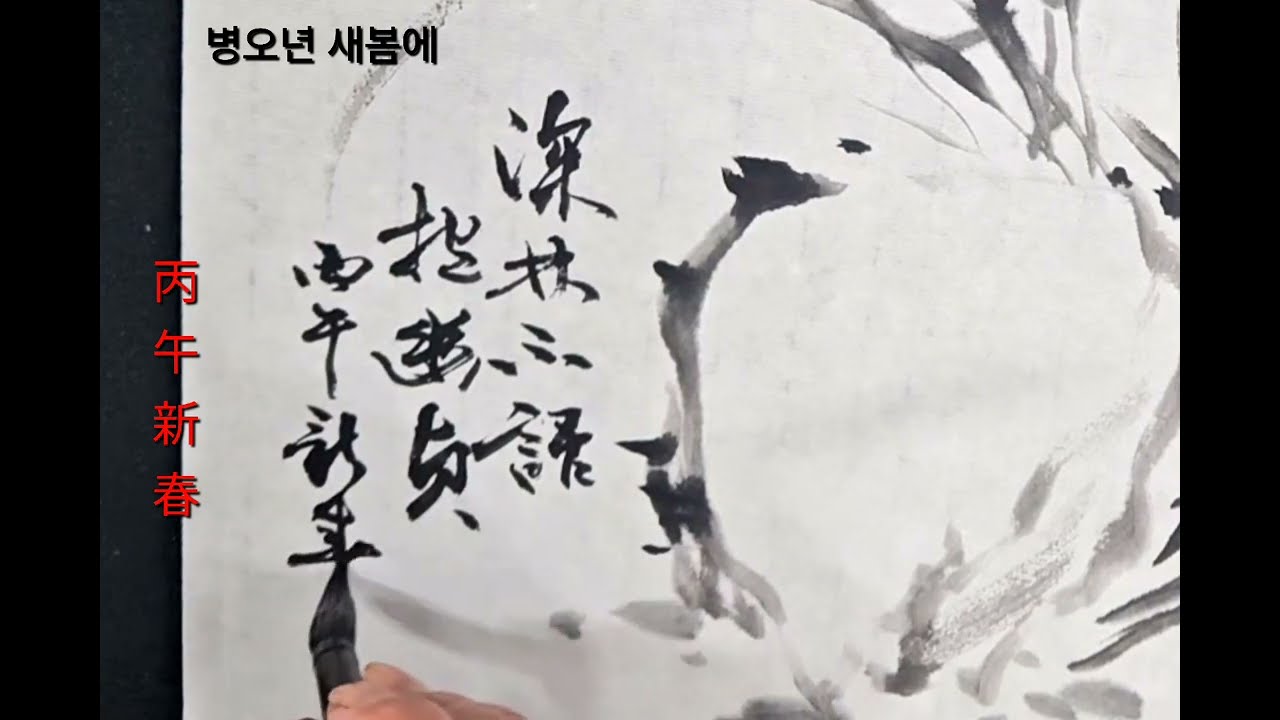 병오년 새봄에
深林不語
抱幽貞
丙午新春
丙午新春